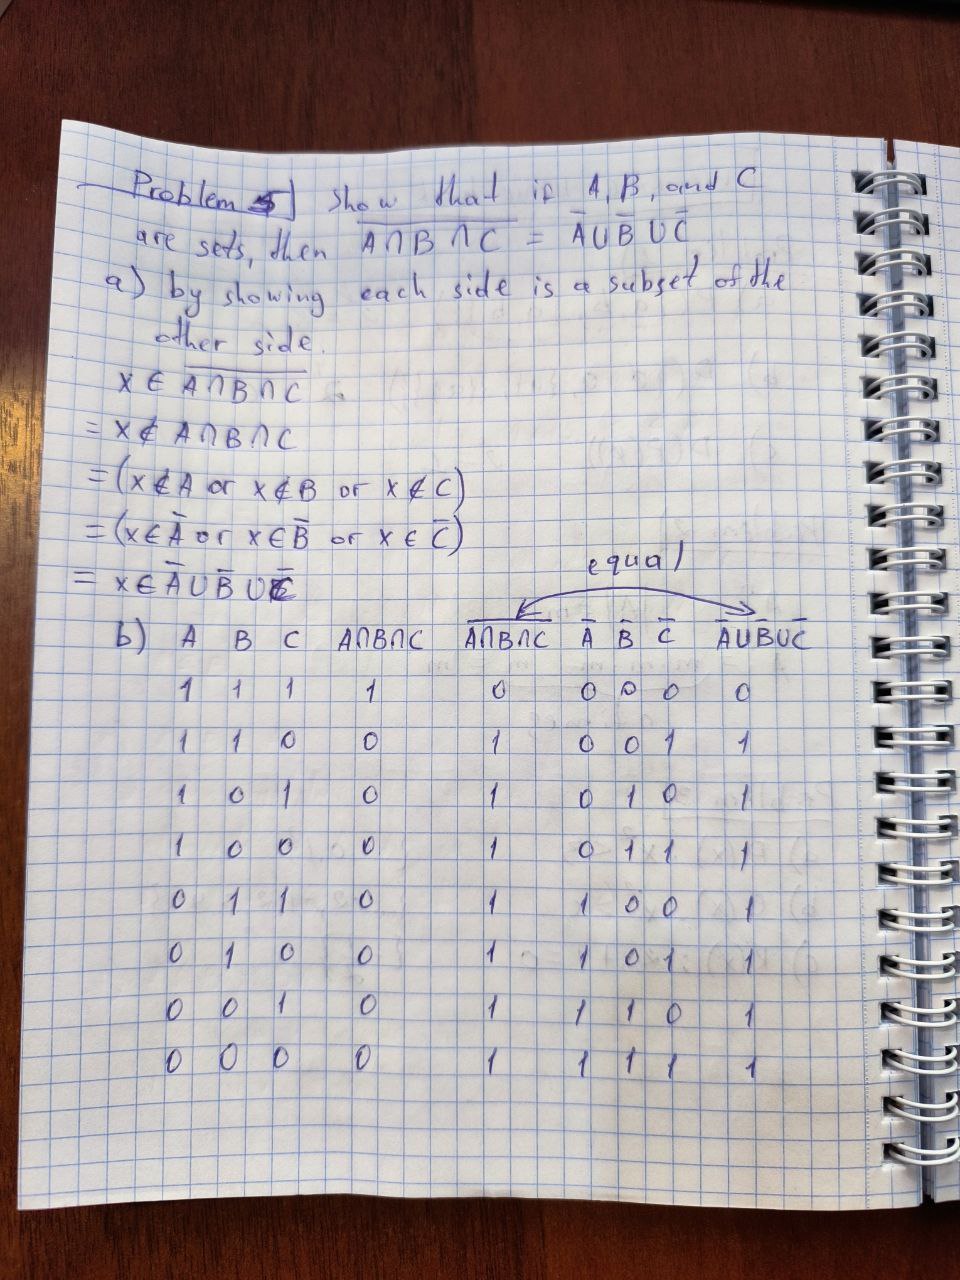 Problem 5) Show that if A, B, and C
are sets, then A̅∩̅B̅∩̅C̅ = A̅ ∪ B̅ ∪ C̅
a) by showing each side is a subset of the
other side.
x ∈ A̅∩̅B̅∩̅C̅
= x ∉ A∩B∩C
= (x ∉ A or x ∉ B or x ∉ C)
= (x ∈ A̅ or x ∈ B̅ or x ∈ C̅)
= x ∈ A̅ ∪ B̅ ∪ C̅
equal
b) A B C A∩B∩C A̅∩̅B̅∩̅C̅ A̅ B̅ C̅ A̅∪B̅∪C̅
1 1 1 1 0 0 0 0 0
1 1 0 0 1 0 0 1 1
1 0 1 0 1 0 1 0 1
1 0 0 0 1 0 1 1 1
0 1 1 0 1 1 0 0 1
0 1 0 0 1 1 0 1 1
0 0 1 0 1 1 1 0 1
0 0 0 0 1 1 1 1 1